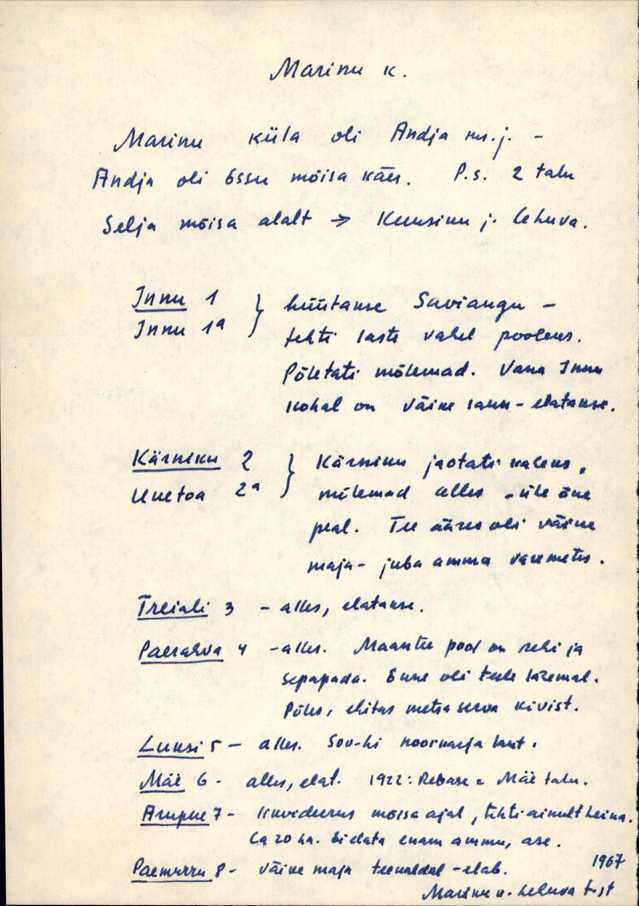 Marinu k.
Marinu küla oli Andja ms.j. -
Andja oli Essu mõisa käes. P.s. 2 talu
Selja mõisa alalt → Kuusiku j. Lehuva.
Innu 1 } hüütakse Saviaugu -
Innu 1a tehti laste vahel pooleks.
Põletati mõlemad. Vana Innu
kohal on väike saun - elatakse.
Kärneku 2 } Kärsniku jaotati kaheks,
Uuetoa 2a mõlemad alles - ühe õue
peal. Tee ääres oli väike
maja - juba ammu varemetes.
Treiali 3 - alles, elatakse.
Paerahva 4 - alles. Maantee pool on rehi ja
sepapada. Enne oli teele lähemal.
Põles, ehitas metsa serva kivist.
Luusi 5 - alles. Sov-hi noorkarja laut.
Mäe 6 - alles, elat. 1922: Rebase = Mäe talu.
Arupue 7 - likvideerus mõisa ajal, tehti ainult heina.
Ca 20 ha. Ei elata enam ammu, ase.
Paemurru 8 - väike maja teenaldal - elab.
1967
Marinu k. Lehuva t-st